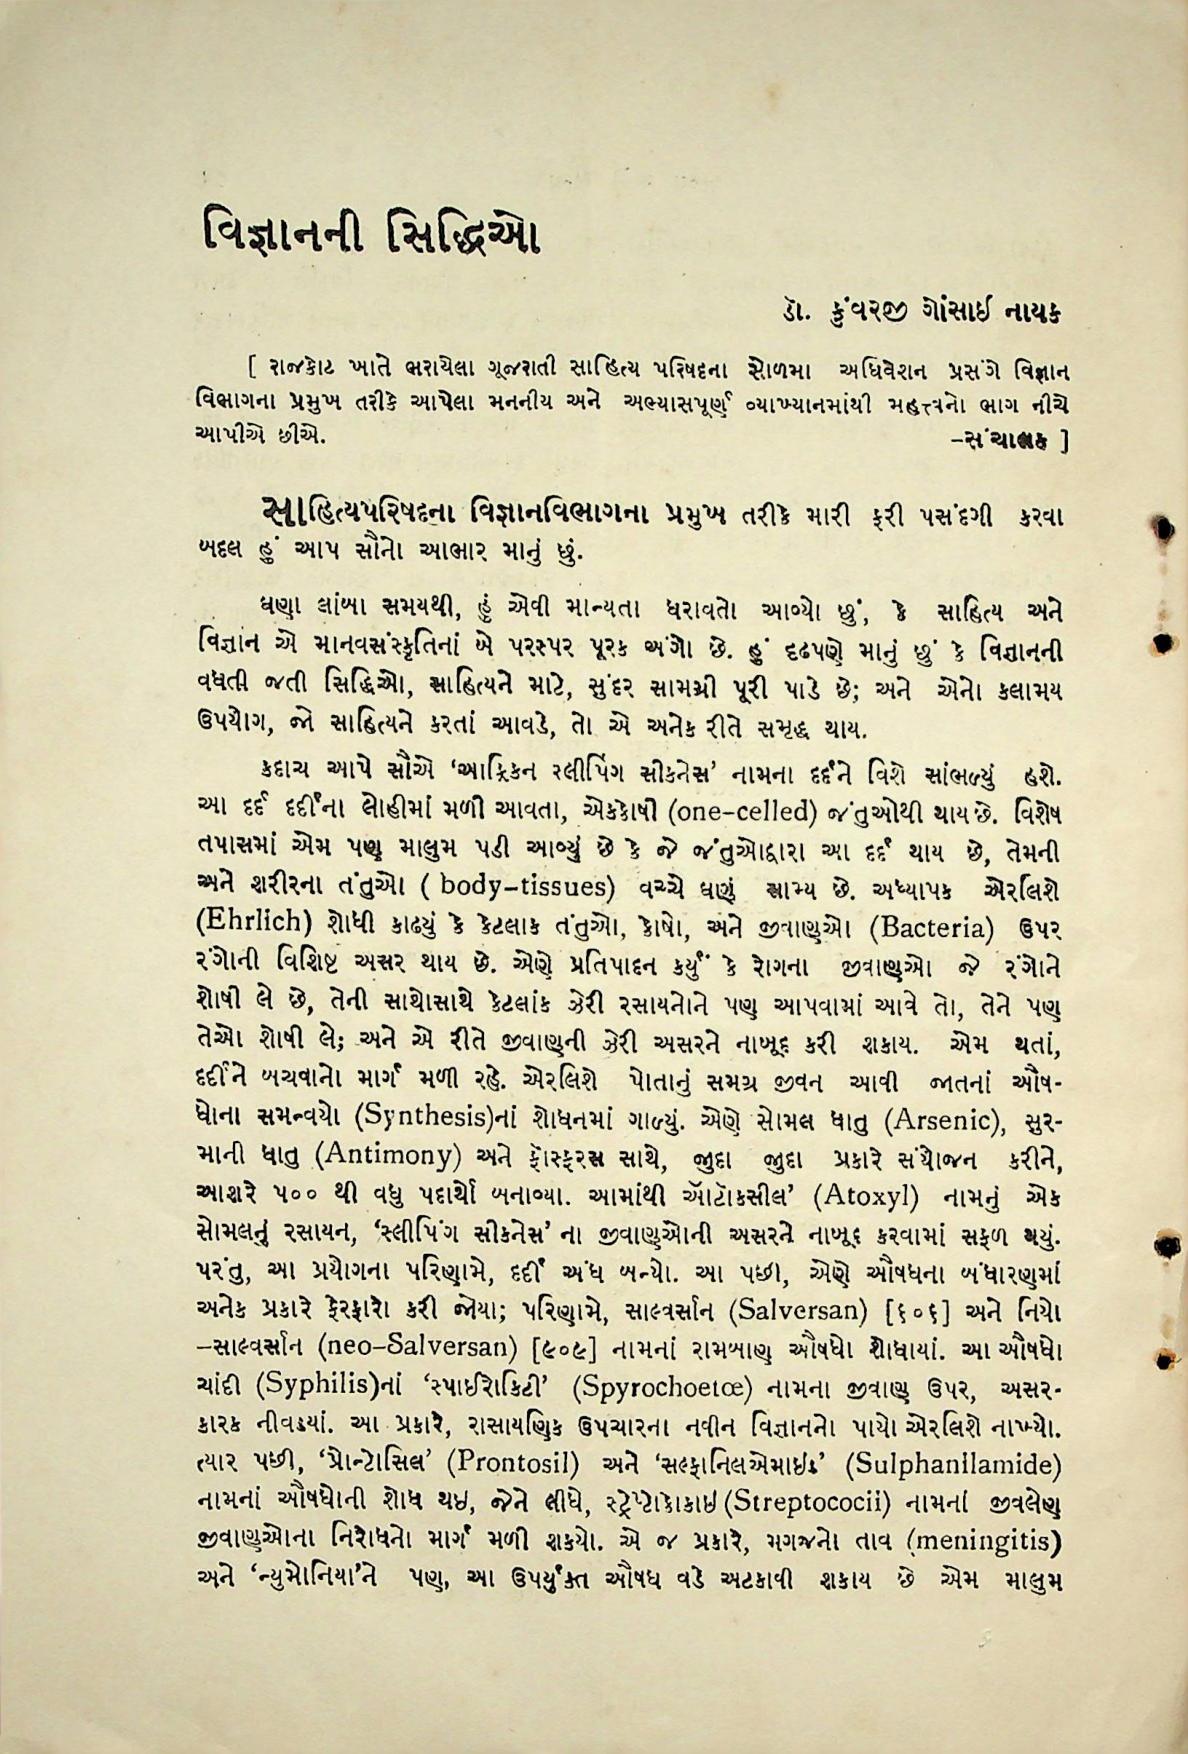 વિજ્ઞાનની સિદ્ધિઓ
ડૉ. કુંવરજી ગોંસાઈ નાયક
[ રાજકોટ ખાતે ભરાયેલા ગૂજરાતી સાહિત્ય પરિષદના સોળમા અધિવેશન પ્રસંગે વિજ્ઞાન
વિભાગના પ્રમુખ તરીકે આપેલા મનનીય અને અભ્યાસપૂર્ણ વ્યાખ્યાનમાંથી મહત્ત્વનો ભાગ નીચે
આપીએ છીએ. –સંચાલક ]
સાહિત્યપરિષદના વિજ્ઞાનવિભાગના પ્રમુખ તરીકે મારી ફરી પસંદગી કરવા
બદલ હું આપ સૌનો આભાર માનું છું.
ઘણા લાંબા સમયથી, હું એવી માન્યતા ધરાવતો આવ્યો છું, કે સાહિત્ય અને
વિજ્ઞાન એ માનવસંસ્કૃતિનાં બે પરસ્પર પૂરક અંગો છે. હું દૃઢપણે માનું છું કે વિજ્ઞાનની
વધતી જતી સિદ્ધિઓ, સાહિત્યને માટે, સુંદર સામગ્રી પૂરી પાડે છે; અને એનો કલામય
ઉપયોગ, જો સાહિત્યને કરતાં આવડે, તો એ અનેક રીતે સમૃદ્ધ થાય.
કદાચ આપે સૌએ ‘આફ્રિકન સ્લીપિંગ સીકનેસ’ નામના દર્દને વિશે સાંભળ્યું હશે.
આ દર્દ દર્દીના લોહીમાં મળી આવતા, એકકોષી (one-celled) જંતુઓથી થાય છે. વિશેષ
તપાસમાં એમ પણ માલુમ પડી આવ્યું છે કે જે જંતુઓદ્વારા આ દર્દ થાય છે, તેમની
અને શરીરના તંતુઓ ( body-tissues) વચ્ચે ઘણું સામ્ય છે. અધ્યાપક એરલિશે
(Ehrlich) શોધી કાઢયું કે કેટલાક તંતુઓ, કોષો, અને જીવાણુઓ (Bacteria) ઉપર
રંગોની વિશિષ્ટ અસર થાય છે. એણે પ્રતિપાદન કર્યું કે રોગના જીવાણુઓ જે રંગોને
શોષી લે છે, તેની સાથોસાથે કેટલાંક ઝેરી રસાયનોને પણ આપવામાં આવે તો, તેને પણ
તેઓ શોષી લે; અને એ રીતે જીવાણુની ઝેરી અસરને નાબૂદ કરી શકાય. એમ થતાં,
દર્દીને બચવાનો માર્ગ મળી રહે. એરલિશે પોતાનું સમગ્ર જીવન આવી જાતનાં ઔષ-
ધોના સમન્વયો (Synthesis)નાં શોધનમાં ગાળ્યું. એણે સોમલ ધાતુ (Arsenic), સુર-
માની ધાતુ (Antimony) અને ફૉસ્ફરસ સાથે, જુદા જુદા પ્રકારે સંયોજન કરીને,
આશરે ૫૦૦ થી વધુ પદાર્થો બનાવ્યા. આમાંથી ઍાટૉકસીલ’ (Atoxyl) નામનું એક
સોમલનું રસાયન, ‘સ્લીપિંગ સીકનેસ’ ના જીવાણુઓની અસરને નાબૂદ કરવામાં સફળ થયું.
પરંતુ, આ પ્રયોગના પરિણામે, દર્દી અંધ બન્યો. આ પછી, એણે ઔષધના બંધારણમાં
અનેક પ્રકારે ફેરફારો કરી જોયા; પરિણામે, સાલ્વર્સાન (Salversan) [૬૦૬] અને નિયો
–સાલ્વર્સાન (neo-Salversan) [૯૦૯] નામનાં રામબાણ ઔષધો શોધાયાં. આ ઔષધો
ચાંદી (Syphilis)નાં ‘સ્પાઈરોકિટી’ (Spyrochoetœ) નામના જીવાણુ ઉપર, અસર-
કારક નીવડયાં. આ પ્રકારે, રાસાયણિક ઉપચારના નવીન વિજ્ઞાનનો પાયો એરલિશે નાખ્યો.
ત્યાર પછી, ‘પ્રોન્ટોસિલ’ (Prontosil) અને ‘સલ્ફાનિલએમાઇડ’ (Sulphanilamide)
નામનાં ઔષધોની શોધ થઇ, જેને લીધે, સ્ટ્રેપ્ટોકોકાઇ (Streptococii) નામનાં જીવલેણ
જીવાણુઓના નિરોધનો માર્ગ મળી શકયો. એ જ પ્રકારે, મગજનો તાવ (meningitis)
અને ‘ન્યુમોનિયા’ને પણ, આ ઉપર્યુક્ત ઔષધ વડે અટકાવી શકાય છે એમ માલુમ